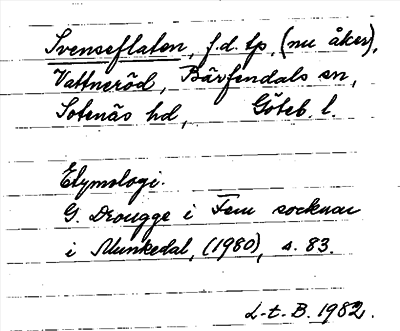 Svenseflaten, f.d. tp. (nu åker),
Vattneröd, Bärfendals sn,
Sotenäs hd, Göteb. l.
Etymologi.
G. Drougge i Fem socknar
i Munkedal, (1980), s. 83.
L-t-B. 1982.